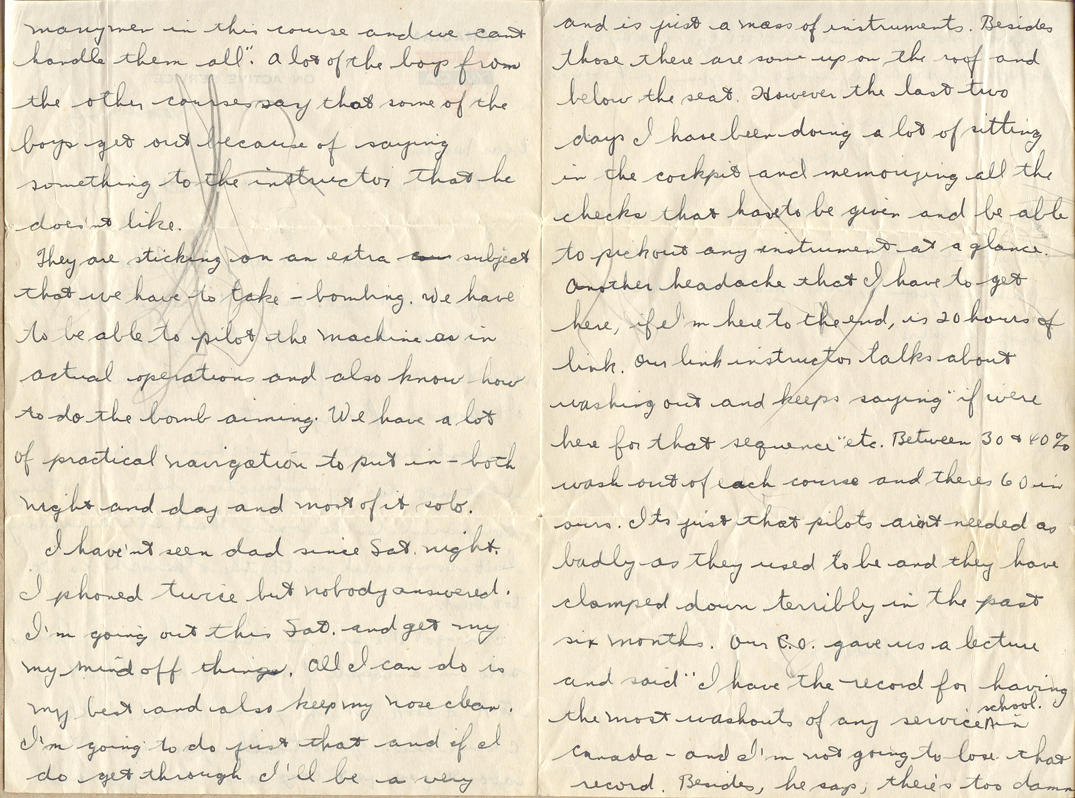 many men in this course and we cant
handle them all". A lot of the boys from
the other courses say that some of the
boys get out because of saying
something to the instructor that he
does'nt like.
They are sticking on an extra subject
that we have to take - bombing. We have
to be able to pilot the machine as in
actual operations and also know how
to do the bomb aiming. We have a lot
of practical navigation to put in - both
night and day and most of it solo.
I have'nt seen dad since Sat. night.
I phoned twice but nobody answered.
I'm going out this Sat. and get my
my mind off things. All I can do is
my best and also keep my nose clean.
I'm going to do just that and if I
do get through I'll be a very
and is just a mass of instruments. Besides
those there are some up on the roof and
below the seat. However the last two
days I have been doing a lot of sitting
in the cockpit and memorizing all the
checks that have to be given and be able
to pick out any instrument at a glance.
Another headache that I have to get
here, if I'm here to the end, is 20 hours of
link. Our link instructor talks about
washing out and keeps saying "if we're
here for that sequence" etc. Between 30 & 40%
wash out of each course and theres 60 in
ours. Its just that pilots are'nt needed as
badly as they used to be and they have
clamped down terribly in the past
six months. Our C.O. gave us a lecture
and said "I have the record for having
the most washouts of any service school. in
Canada - and I'm not going to lose that
record. Besides, he says, there's too damn